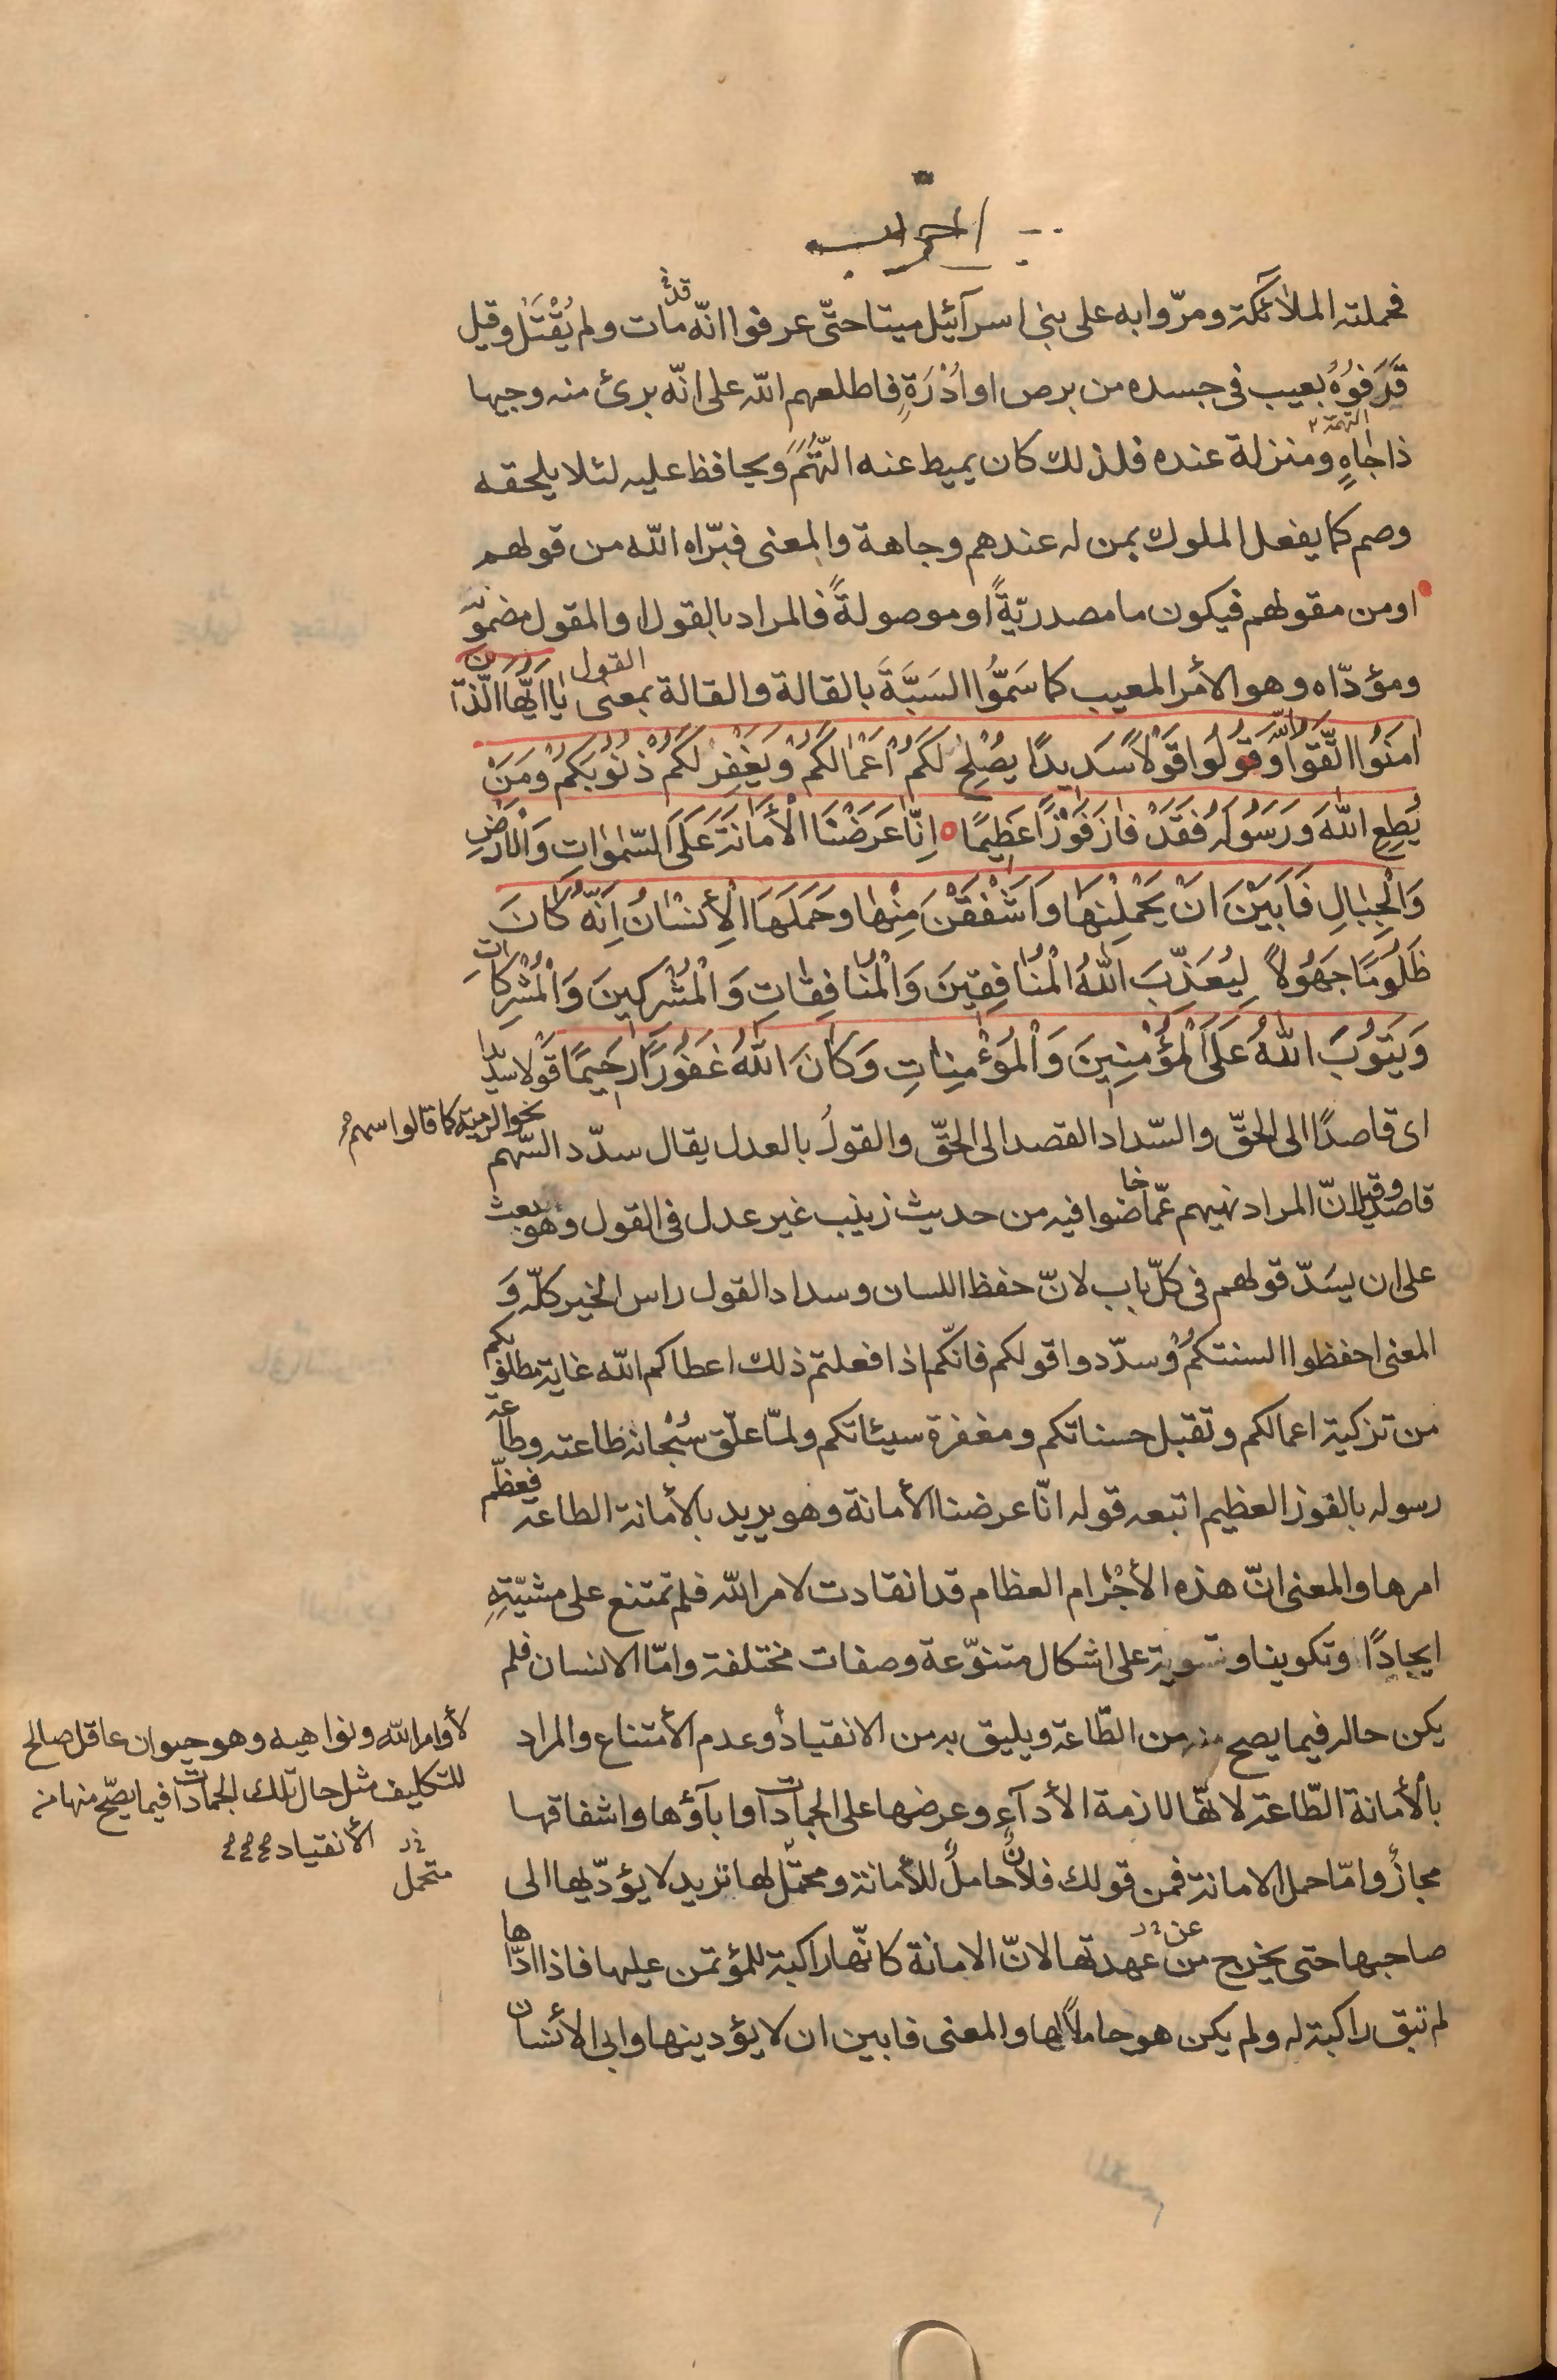 احزاب
فحملته الملائكة ومرّوا به على بنى اسرآئيل ميتا حتّى عرفوا انّه قد مات ولم يُقْتَل وقيل
قَذَفُوهُ بعيب فى جسده من برص او اُدْرَةٍ فاطلعهم الله على انّه برئ منه وجيها
التهمة
ذا جاهٍ ومنزلة عنده فلذلك كان يميط عنه التُّهَمَ ويحافظ عليه لئلا يلحقه
وصم كما يفعل الملوك بمن له عندهم وجاهة والمعنى فبرّاه الله من قولهم
او من مقولهم فيكون ما مصدريّةً او موصولةً فالمراد بالقول او المقول مضمونه
ومؤدّاه وهو الأمر المعيب كما سَمَّوُا السَبَّةَ بالقالة والقالة بمعنى القول يٰا اَيُّهَا الَّذينَ
اٰمَنُوا اتَّقُوا اللّٰهَ وَقُولُوا قَوْلًا سَديدًا يُصْلِحْ لَكُمْ اَعْمٰالَكُمْ وَيَغْفِرْ لَكُمْ ذُنُوبَكُمْ وَمَنْ
يُطِعِ اللهَ وَرَسُولَهُ فَقَدْ فٰازَ فَوْزًا عَظِيمًا اِنّٰا عَرَضْنَا الْأَمٰانَةَ عَلَى السَّمٰوٰاتِ وَالْاَرْضِ
وَالْجِبٰالِ فَاَبَيْنَ اَنْ يَحْمِلْنَهٰا وَاَشْفَقْنَ مِنْهٰا وَحَمَلَهَا الْاِنْسٰانُ اِنَّهُ كٰانَ
ظَلُومًا جَهُولًا لِيُعَذِّبَ اللهُ الْمُنٰافِقِينَ وَالْمُنٰافِقٰاتِ وَالْمُشْرِكِينَ وَالْمُشْرِكٰاتِ
وَيَتُوبَ اللهُ عَلَى الْمُؤْمِنِينَ وَالْمُؤْمِنٰاتِ وَكٰانَ اللهُ غَفُورًا رَحِيمًا قَوْلا سديدا
اى قاصدًا الى الحقّ والسّداد القصد الى الحقّ والقول بالعدل يقال سدّد السّهم نحو الرمية كما قالوا سهم
قاصد وقيل انّ المراد نهيهم عمّا خاضوا فيه من حديث زينب غير عدل فى القول وهو بعث
على ان يسَدّ قولهم فى كلّ باب لانّ حفظ اللسان وسداد القول راس الخير كلّه وَ
المعنى احفظوا السنتكمُ وسدّدوا قولكم فانّكم اذا فعلتم ذلك اعطاكم الله غاية مطلوبكم
من تزكية اعمالكم وتقبل حسناتكم ومغفرة سيئاتكم ولمّا علّق سُبْحانه طاعته وطاعة
رسوله بالفوز العظيم اتبعه قوله انّا عرضنا الأمانة وهو يريد بالأمانة الطاعة فعظّم
امرها والمعنى انّ هذه الأجْرٰام العظام قد انقادت لامر الله فلم تمتنع على مشيّتِهِ
ايجادًا وتكوينا وتسوية على اشكال متنوّعة وصفات مختلفة وامّا الانسان فلم
يكن حاله فيما يصح منه من الطّاعة ويليق به من الانقياد وعدم الأمتناع والمراد
لأوامر الله ونواهيه وهو حيوان عاقل صالح
للتكليف مثل حال تلك الجمادات فيما يصحّ منها من
الأنقياد
بالأمانة الطّاعة لانّها لازمة الأدآءِ وعرضها على الجمادات وابآؤها واشفاقها
مجازٌ وامّا حمل الامانة فمن قولك فلانٌ حاملٌ للأمانة ومحتمل لها تريد لا يؤدّيها الى
متحمل
صاحبها حتى يخرج من عن عهدتها لانّ الامانة كانّها راكبة للمؤتمن عليها فاذا ادّاها
لم تبق راكبة له ولم يكن هو حاملًا لها والمعنى فابين ان لا يؤدينها وابى الأنسان